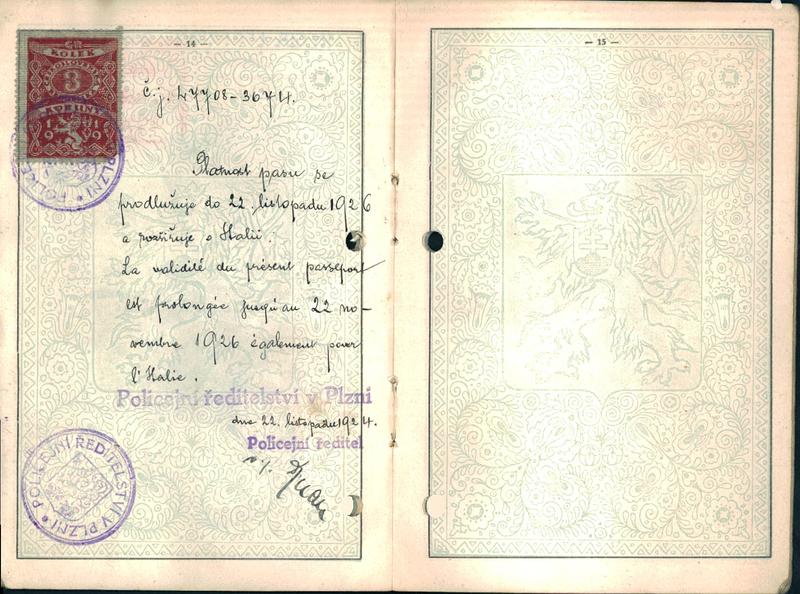 — 14 —
KOLEK
3
1919
č.j. 47708-3674.
Platnost pasu se
prodlužuje do 22. listopadu 1926
a rozšiřuje o Italii.
La validité du présent passeport
est prolongée jusqu'au 22 no-
vembre 1926 également pour
l'Italie.
Policejní ředitelství v Plzni
dne 22. listopadu 1924.
Policejní ředitel
POLICEJNÍ ŘEDITELSTVÍ V PLZNI
— 15 —